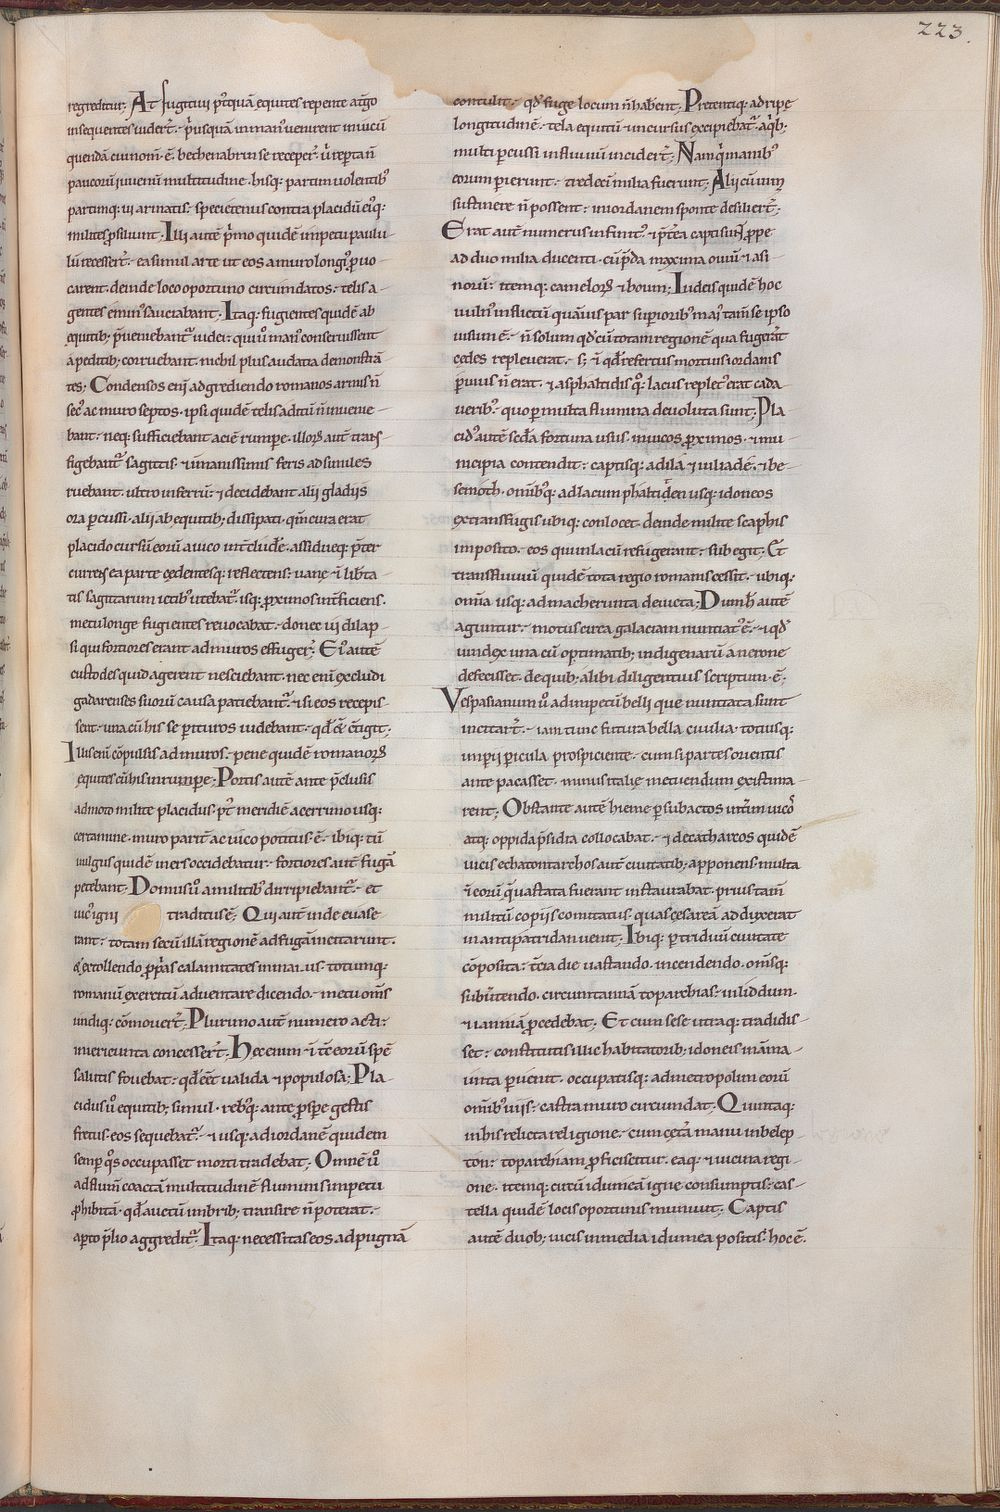 223.
regreditur; At fugitiui p̄tquā equites repente atg̃o
insequentes uider̄t. p̄usquā inman' uenirent inuicū
quendā cui nom̄. ē. bethenabrin se receper̄t. ubi reperta ñ
paucorū iuuenū multitudine. hisq; partim uolentib'
partimq; ui armatis. specietenus contra placidū ei'q;
milites p̄siliunt; Illi autē p̄mo quidē impetu paulu-
lū recesser̄t. ea simul arte ut eos a muro longi' p̄uo-
carent. deinde loco oportuno circumdatos. telis a-
gentes emin' sauciabant; Itaq; fugientes quidē ab
equitib; p̄ueniebant' iudei. qui ū man' conseruissent
á peditib; corruebant. nichil plus audatia demonstrā-
tes; Condensos eni adgrediendo romanos armis ñ
sec' ac muro septos. ipsi quidē telis aditū ñ inuenie-
bant. neq; sufficiebant aciē rump̄e. illorū autē trans-
figebant' sagittis. & inmanissimis feris adsimiles
ruebant. ultro in ferrū. & decidebant alii gladiis
ora p̄cussi. alii ab equitib; dissipati. q̄m cura erat
placido cursū eorū a uico int̄clud̄e. assidueq; p̄ter
currens ea parte cedentesq; reflectens. uane & lib̄ta
tis sagittarum ictib' utebat'. isq; p̄ximos int̄ficiens.
metu longe fugientes reuocabat. donec ui dilap-
si qui fortiores erant ad muros effuger̄t; Ei' autē
custodes quid agerent nesciebant. nec enī excludi
gadarenses suorū causa patiebant'. & si eos recepis-
sent. una cū his se perituros uidebant. qd̄ & c̄tigit;
Illis enī cōpulsis ad muros. pene quidē romanorū
equites cū his inrumpe; Portis autē ante p̄clusis
admoto milite placidus. p̄t meridiē acerrimo usq;
certamine. muro parit̄ ac uico potitus. ē. ibiq; tū
uulgus quidē iners occidebatur. fortiores aut̄ fugā
petebant. Domus ū a militib' diripiebant'. et
uic' igni traditus ē; Qui aut̄ inde euase
rant. totam secū illā regionē ad fugā incitarunt.
& extollendo p̄p̄as calamitates minarus. totumq;
romanū exercitū aduentare dicendo. metu om̄s
undiq; cōmouer̄t; Plurimo autē numero acti.
in iericunta concesser̄t; Hęc enim & tē eorū spē
salutis fouebat. qd̄ eēt ualida & populosa; Pla-
cidus ū equitib; simul. reb'q; ante p̄spere gestis
fretus. eos sequebat'. & usq; ad iordanē quidem
semp̄ q̄s occupasset morti tradebat; Omnē ū
ad flum̄ coactā multitudinē fluminis impetu
p̄hibitā. qd̄ auctū imbrib; transire ñ poterat.
ap̄to p̄lio aggredit'; Itaq; necessitas eos ad pugnā
contulit. qd̄ fuge locum ñ hab̄ent; Pretentiq; ad ripe
longitudinē. tela equitū & incursus excipiebat'. a q'b;
multi p̄cussi in fluuiū incider̄t; Nam q̄ manib'
eorum perierunt. tredecī milia fuerunt; Alii cū uim
sustinere ñ possent. in iordanem sponte desilier̄t;
Erat autē numerus infinit'. & p̄t̄ea captisunt p̄pe
ad duo milia ducenti. cū p̄da maxima ouiū & asi-
norū. itemq; camelorū & boum; Iudeis quidē hoc
uuln' inflictū quāuis par superiorib' mai' tam̄ se ipso
uisum ē. ñ solum qd̄ cū totam regionē qua fuger̄t
cędes repleuerat. s; & qd̄ refertus mortuis iordanis
p̄uius ñ erat. & asphaltidis q' lacus replet' erat cada
uerib'. quo per multa flumina deuoluta sunt; Pla
cid' autē secūda fortuna usus. in uicos p̄ximos. & mu-
nicipia contendit. captisq; adila & iuliade. & be-
semoth. omib'q; ad lacum phaltiden usq; idoneos
ex transfugis ubiq; conlocet. deinde milite scaphis
imposito. eos qui in lacū refugerant. subegit; Et
trans fluuiū quidē tota regio romanis cessit. ubiq;
om̄ia usq; ad macherunta deuicta; Dum h̄ autē
aguntur. motus circa galaciam nuntiat' ē. & qd̄
uindex una cū optimatib; indigenarū a nerone
defecisset. de quib; alibi diligentius scriptum ē;
Vespasianum ū ad impetū belli que nuntiata sunt
incitar̄t. iam tunc futura bella ciuilia. totiusq;
imperii pericula prospiciente. cum si partes orientis
ante pacasset. minus italię metuendum existima-
rent; Obstante autē hieme p̄ subactos int̄im uicos
atq; oppida p̄sidia collocabat. & decatharcos quidē
uicis echatontarchos aut̄ ciuitatib; apponens. multa
& eorū q̄ uastata fuerant instaurabat. prius tam̄
militū copiis comitatus. quas cesareā adduxerat
in antipatridan uenit. Ibiq; p̄ triduū ciuitate
cōposita. t̄cia die uastando. incendendo. om̄sq;
subūtendo. circumtamniā toparchias. in liddum-
& iamniā p̄cedebat; Et cum sese utraq; tradidis-
set. constitutis illic habitatorib; idoneis in āma-
unta p̄uenit. occupatisq; ad metropolim eorū
omib' uiis. castra muro circundat; Quintaq;
in his relicta religione. cum cęt̄a manu in belep-
ton. toparchiam p̄ficiscitur. eaq; & uicina regi-
one. itemq; circū idumeā igne consumptis. cas-
tella quidē locis oportunis muniuit; Captis
autē duob; uicis in media idumea positis. hoc ē.